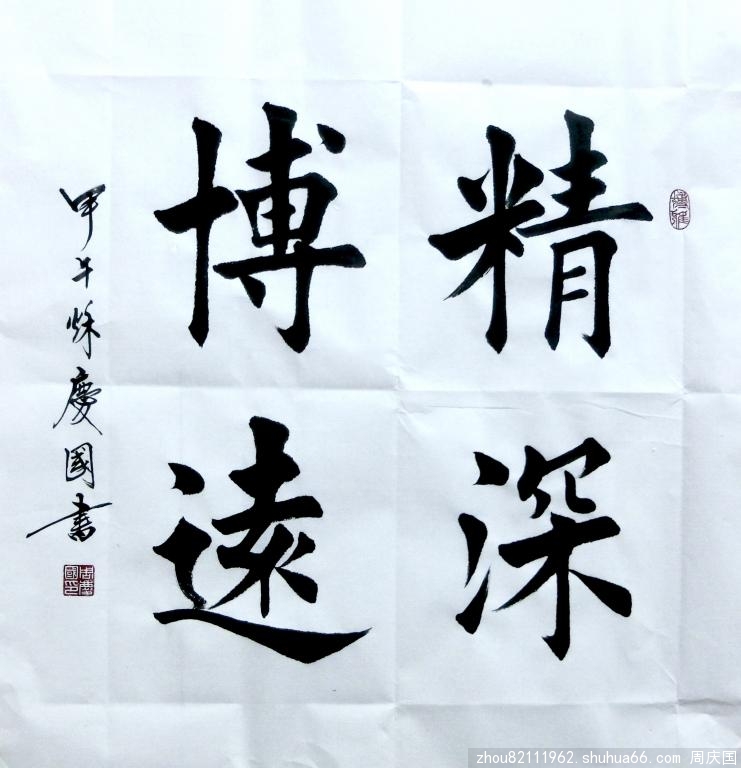 精深
博遠
甲午秌慶國書
周慶國印
zhou82111962.shuhua66.com 周庆国